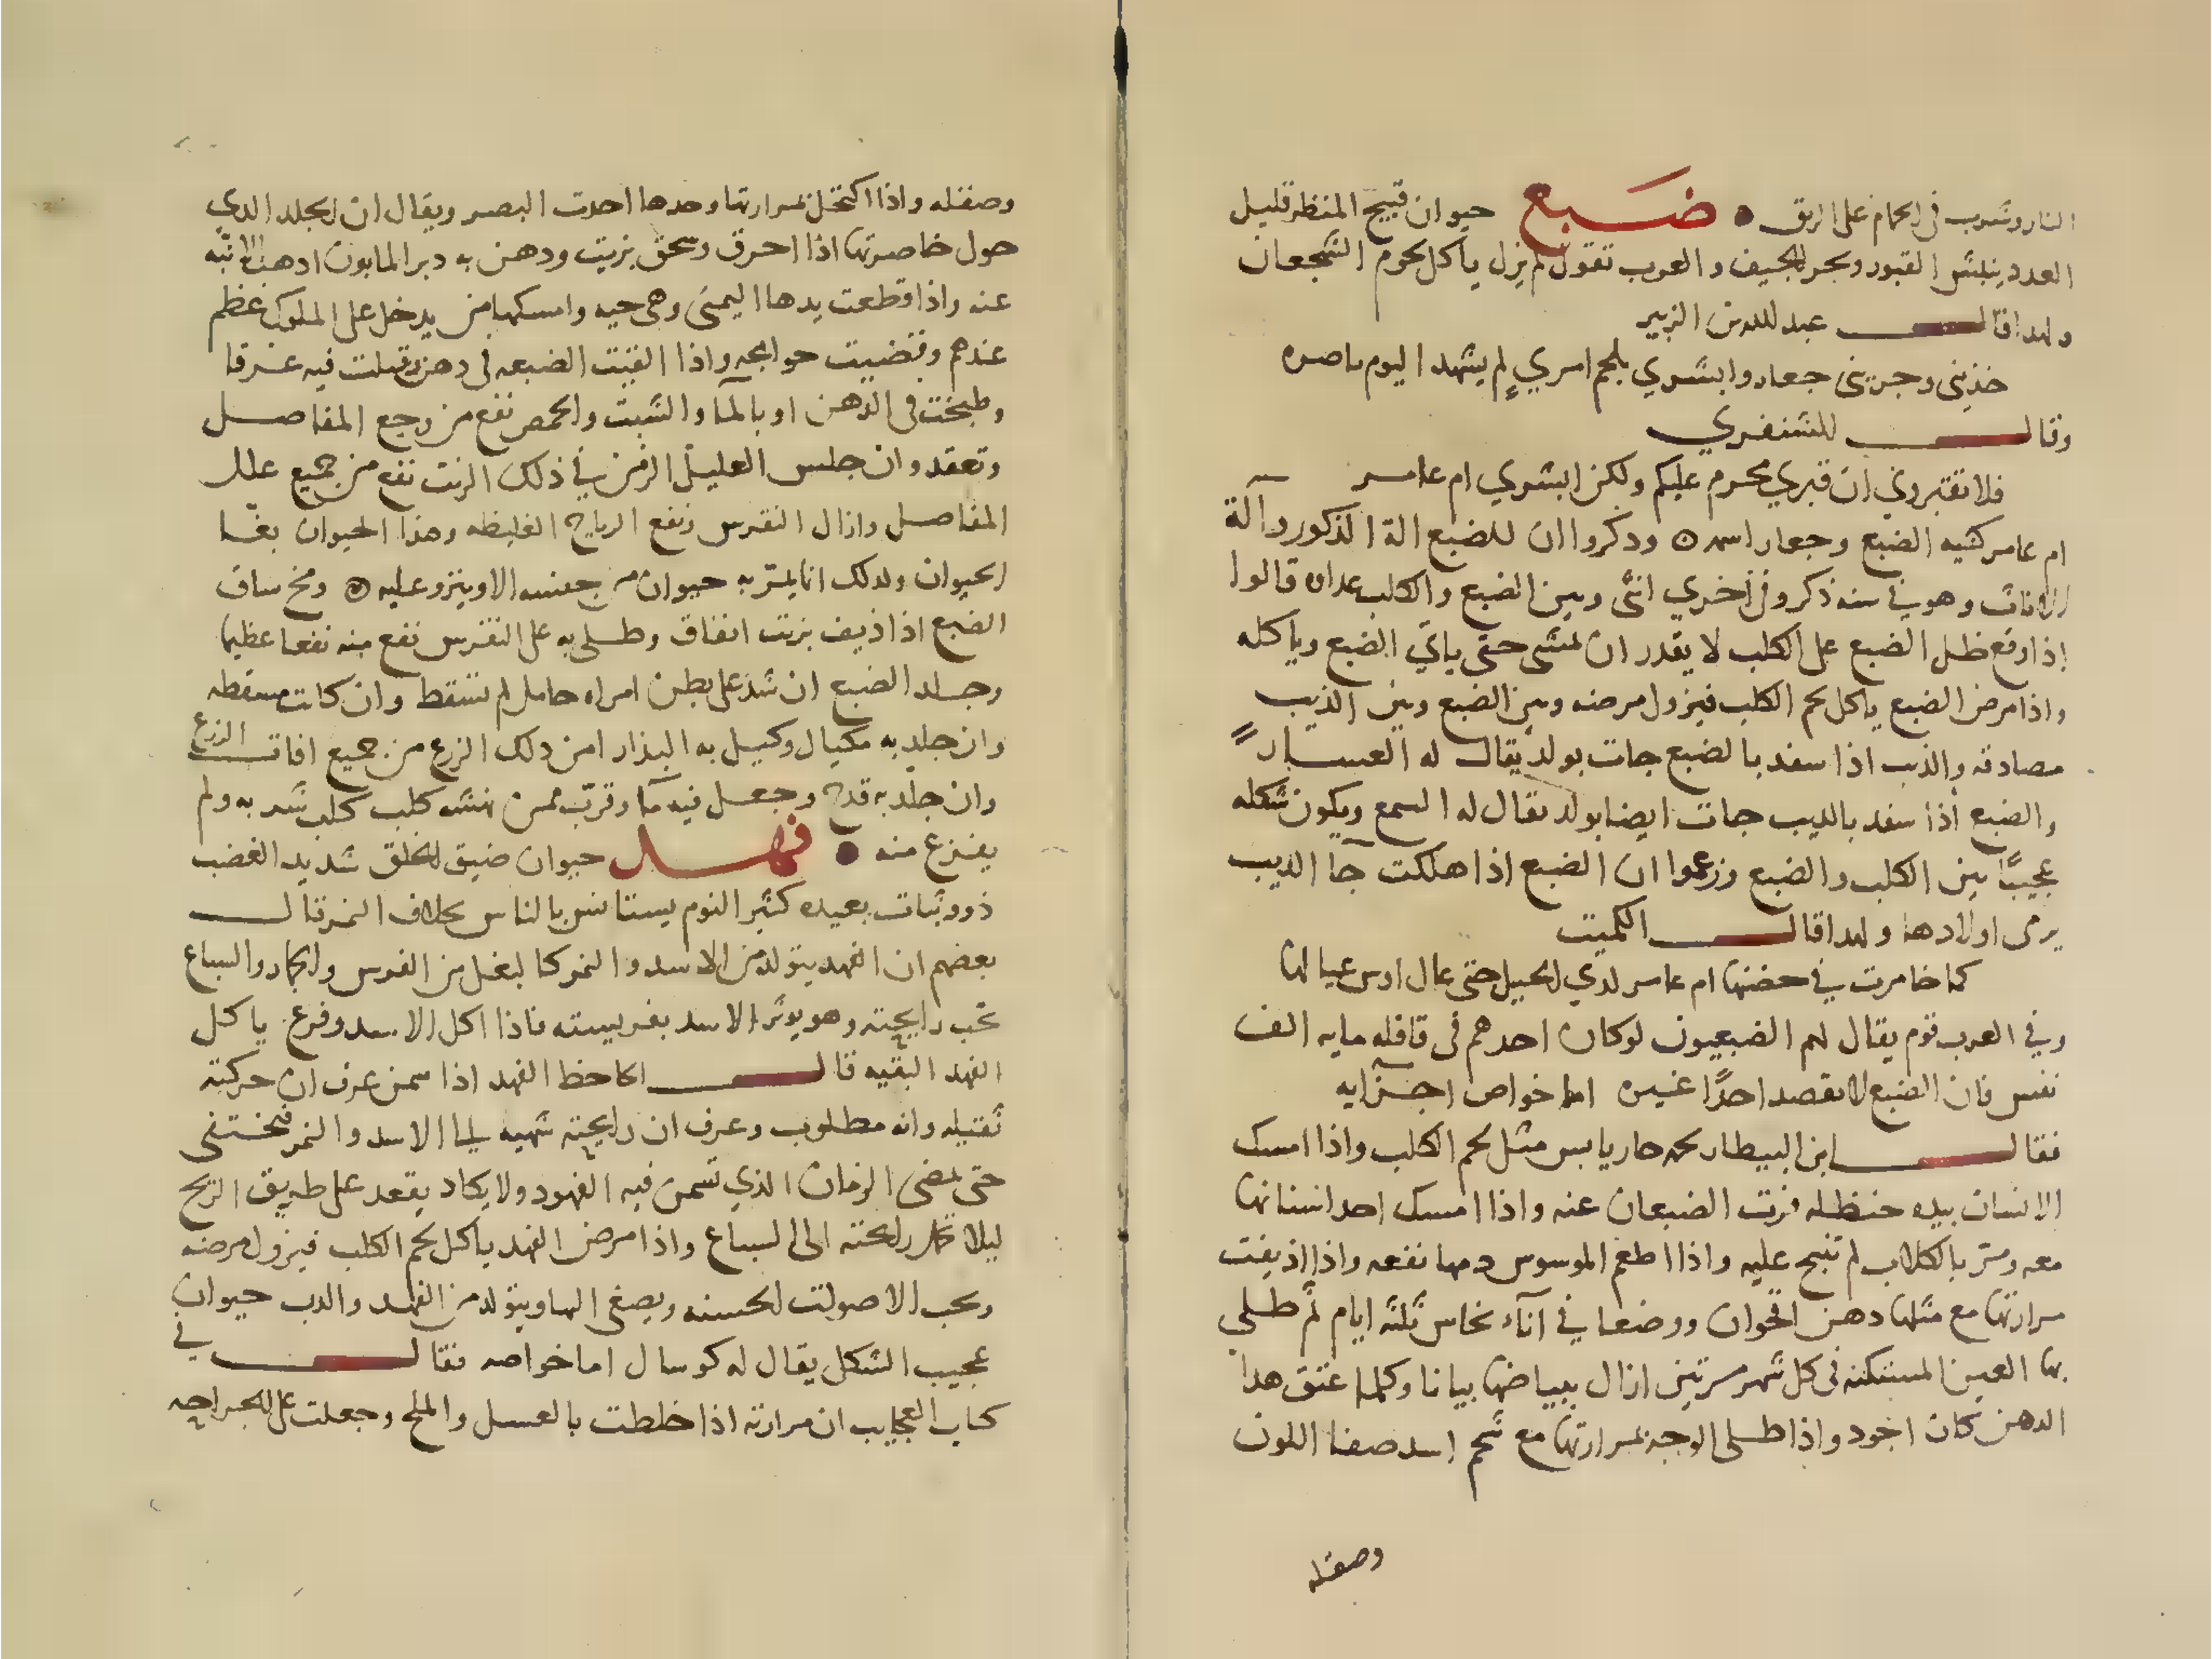 النار وشرب فى الحمام على الريق ضبع حيوان قبيح المنظر قليل
العدد ينبش القبور ويجر الجيف والعرب تقول لم يزل ياكل لحوم الشجعان
ولهدا قال عبد الله بن الزبير
خذينى وجرينى جعار وابشري بلحم امري لم يشهد اليوم ناصره
وقال للشنفري
فلا تقبروني ان قبري محرم عليكم ولكن ابشري ام عامر
ام عامر كنيه الضبع وجعار اسمه ودكروا ان للضبع الة الذكور وآلة
الاناث وهو في سنه ذكر وفى اخري انثى وبين الضبع والكلب عداوه قالوا
إذا وقع ظل الضبع على الكلب لا يقدر ان يمشى حتى ياتي الضبع وياكله
واذا مرض الضبع ياكل لحم الكلب فيزول مرضه وبين الضبع وبين الذيب
مصادقه والذيب اذا سفد بالضبع جات بولد يقال له العسبار
والضبع اذا سفد بالديب جات ايضا بولد يقال له السمع ويكون شكله
عجيبًا بين الكلب والضبع وزعموا ان الضبع اذا هلكت جا الديب
يربى اولادها ولهدا قال الكميت
كما خامرت في حضنها ام عامر لدي الحبل حتى عال اوس عيالها
وفي العرب قوم يقال لهم الضبعيون لو كان احدهم فى قافله مايه الف
نفس فان الضبع لا يقصد احدًا غيره اما خواص اجزآيه
فقال ابن البيطار لحمه حار يابس مثل لحم الكلب واذا امسك
الانسان بيده حنظله فرت الضبعان عنه واذا امسك احد اسنانها
معه ومر بالكلاب لم تنبح عليه واذا اطعم الموسوس دمها نفعه واذا اذيفت
مرارتها مع مثلها دهن اقحوان ووضعا في آناء نحاس ثلثه ايام ثم طلي
بها العين المستكنه فى كل شهر مرتين ازال بياضها بيانا وكلما عتق هدا
الدهن كان اجود واذا طلى الوجه بمرارتها مع شحم اسد صفا اللون
وصقله
وصقله واذا اكتحل بمرارتها وحدها احدت البصر ويقال ان الجلد الدي
حول خاصرتها اذا احرق وسحق بزيت ودهن به دبر المابون ادهب الابنه
عنه واذا قطعت يدها اليمنى وهى حيه وامسكها من يدخل على الملوك عظم
عندهم وقضيت حوايجه واذا القيت الضبعه فى دهن وقتلت فيه غرقا
وطبخت فى الدهن او بالمآ والشبت والحمص نفع من وجع المفاصل
وتعقد وان جلس العليل الزمن في ذلك الزيت نفع من جميع علل
المفاصل وازال النقرس ونفع الرياح الغليظه وهذا الحيوان بغا
الحيوان ولدلك انما يمر به حيوان من جنسه الا وينزو عليه ومخ ساق
الضبع اذا ذيف بزيت انفاق وطلى به على النقرس نفع منه نفعا عظيما
وجلد الضبع ان شد على بطن امراه حامل لم تسقط وان كانت مسقطه
وان جلد به مكيال وكيل به البذار امن دلك الزرع من جميع افات الزرع
وان جلد به قدح وجعل فيه مآ وقرب ممن نهشه كلب كلب شربه ولم
يفزع منه فهد حيوان ضيق الخلق شديد الغضب
ذو وثبات بعيده كثير النوم يستانس بالناس بخلاف النمر قال
بعضهم ان الفهد يتولد من الاسد والنمر كالبغل من الفرس والحمار والسباع
تحب رايحته وهو يوثر الاسد بفريسته فاذا اكل الاسد وفرغ ياكل
الفهد البقيه قال الجاحظ الفهد اذا سمن عرف ان حركته
ثقيله وانه مطلوب وعرف ان رايحته شهيه الى الاسد والنمر فيختفى
حتى يمضى الزمان الذي تسمن فيه الفهود ولا يكاد يقعد على طريق الريح
ليلا رايحته الى السباع واذا مرض الفهد ياكل لحم الكلب فيزول مرضه
ويحب الاصوات الحسنه ويصغى اليها ويتولد من الفهد والدب حيوان
عجيب الشكل يقال له كوسال اما خواصه فقال في
كتاب العجايب ان مرارته اذا خلطت بالعسل والملح وجعلت على الجراحه